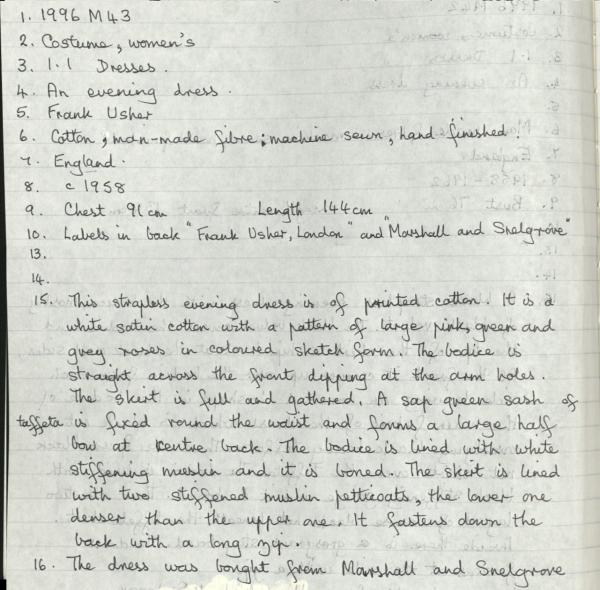 1. 1996 M43
2. Costume, women's
3. 1.1 Dresses.
4. An evening dress.
5. Frank Usher
6. Cotton, man-made fibre; machine sewn, hand finished.
7. England.
8. c 1958
9. Chest 91cm Length 144cm
10. Labels in back "Frank Usher, London" and "Marshall and Snelgrove"
13.
14.
15. This strapless evening dress is of printed cotton. It is a
white satin cotton with a pattern of large pink, green and
grey roses in coloured sketch form. The bodice is
straight across the front dipping at the arm holes.
The skirt is full and gathered. A sap green sash of
taffeta is fixed round the waist and forms a large half
bow at centre back. The bodice is lined with white
stiffening muslin and it is boned. The skirt is lined
with two stiffened muslin petticoats, the lower one
denser than the upper one. It fastens down the
back with a long zip.
16. The dress was bought from Marshall and Snelgrove